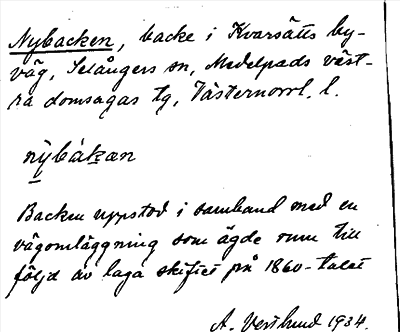 Nybacken, backe i Kvarsätts by-
väg, Selångers sn, Medelpads väst-
ra domsagas tg, Västernorrl. l.
nybákan
Backen uppstod i samband med en
vägomläggning som ägde rum till
följd av laga skiftet på 1860-talet
A. Vestlund 1934.